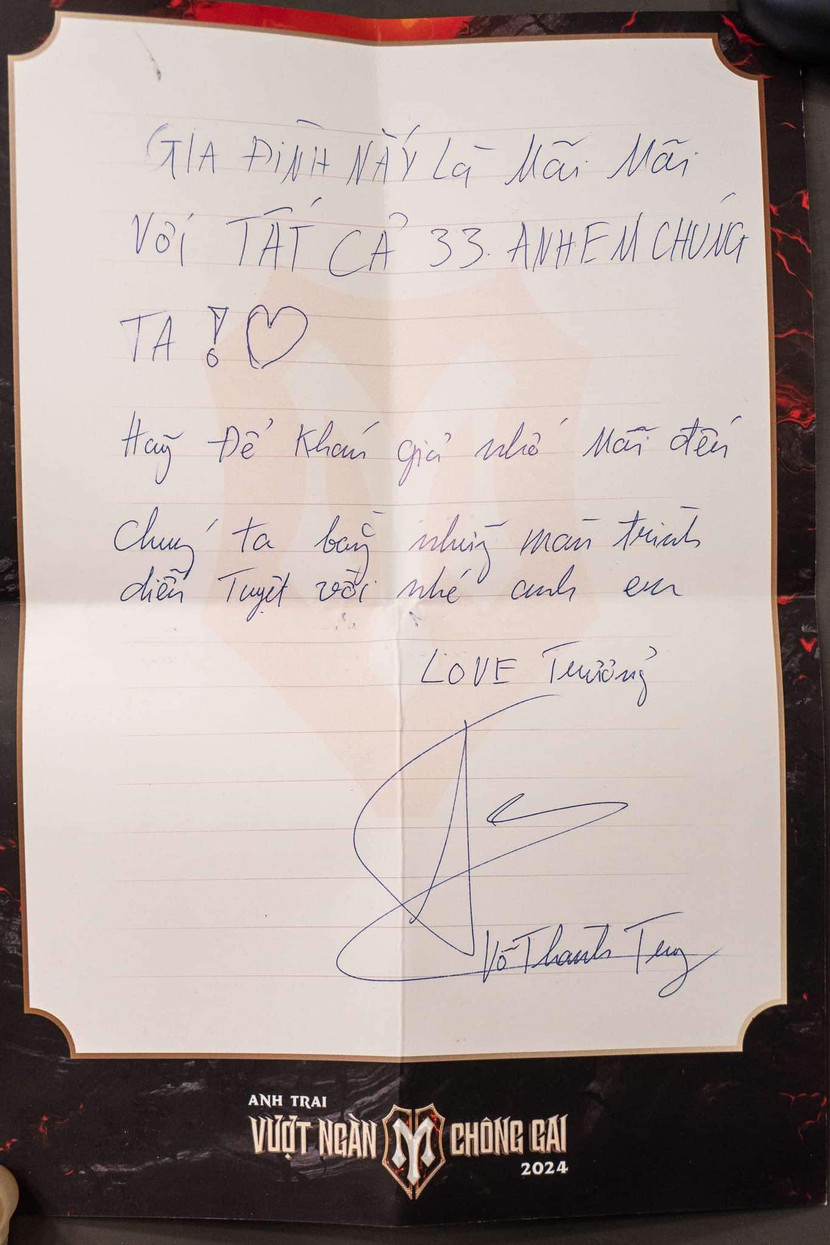 GIA ĐÌNH NÀY Là Mãi Mãi
Với TẤT CẢ 33 ANH EM CHÚNG
TA ! ♡
Hãy Để Khán giả nhớ Mãi đến
chúng ta bằng những màn trình
diễn Tuyệt vời nhé anh em
LOVE Trưởng
Võ Thành Tâm
ANH TRAI
VƯỢT NGÀN CHÔNG GAI
2024